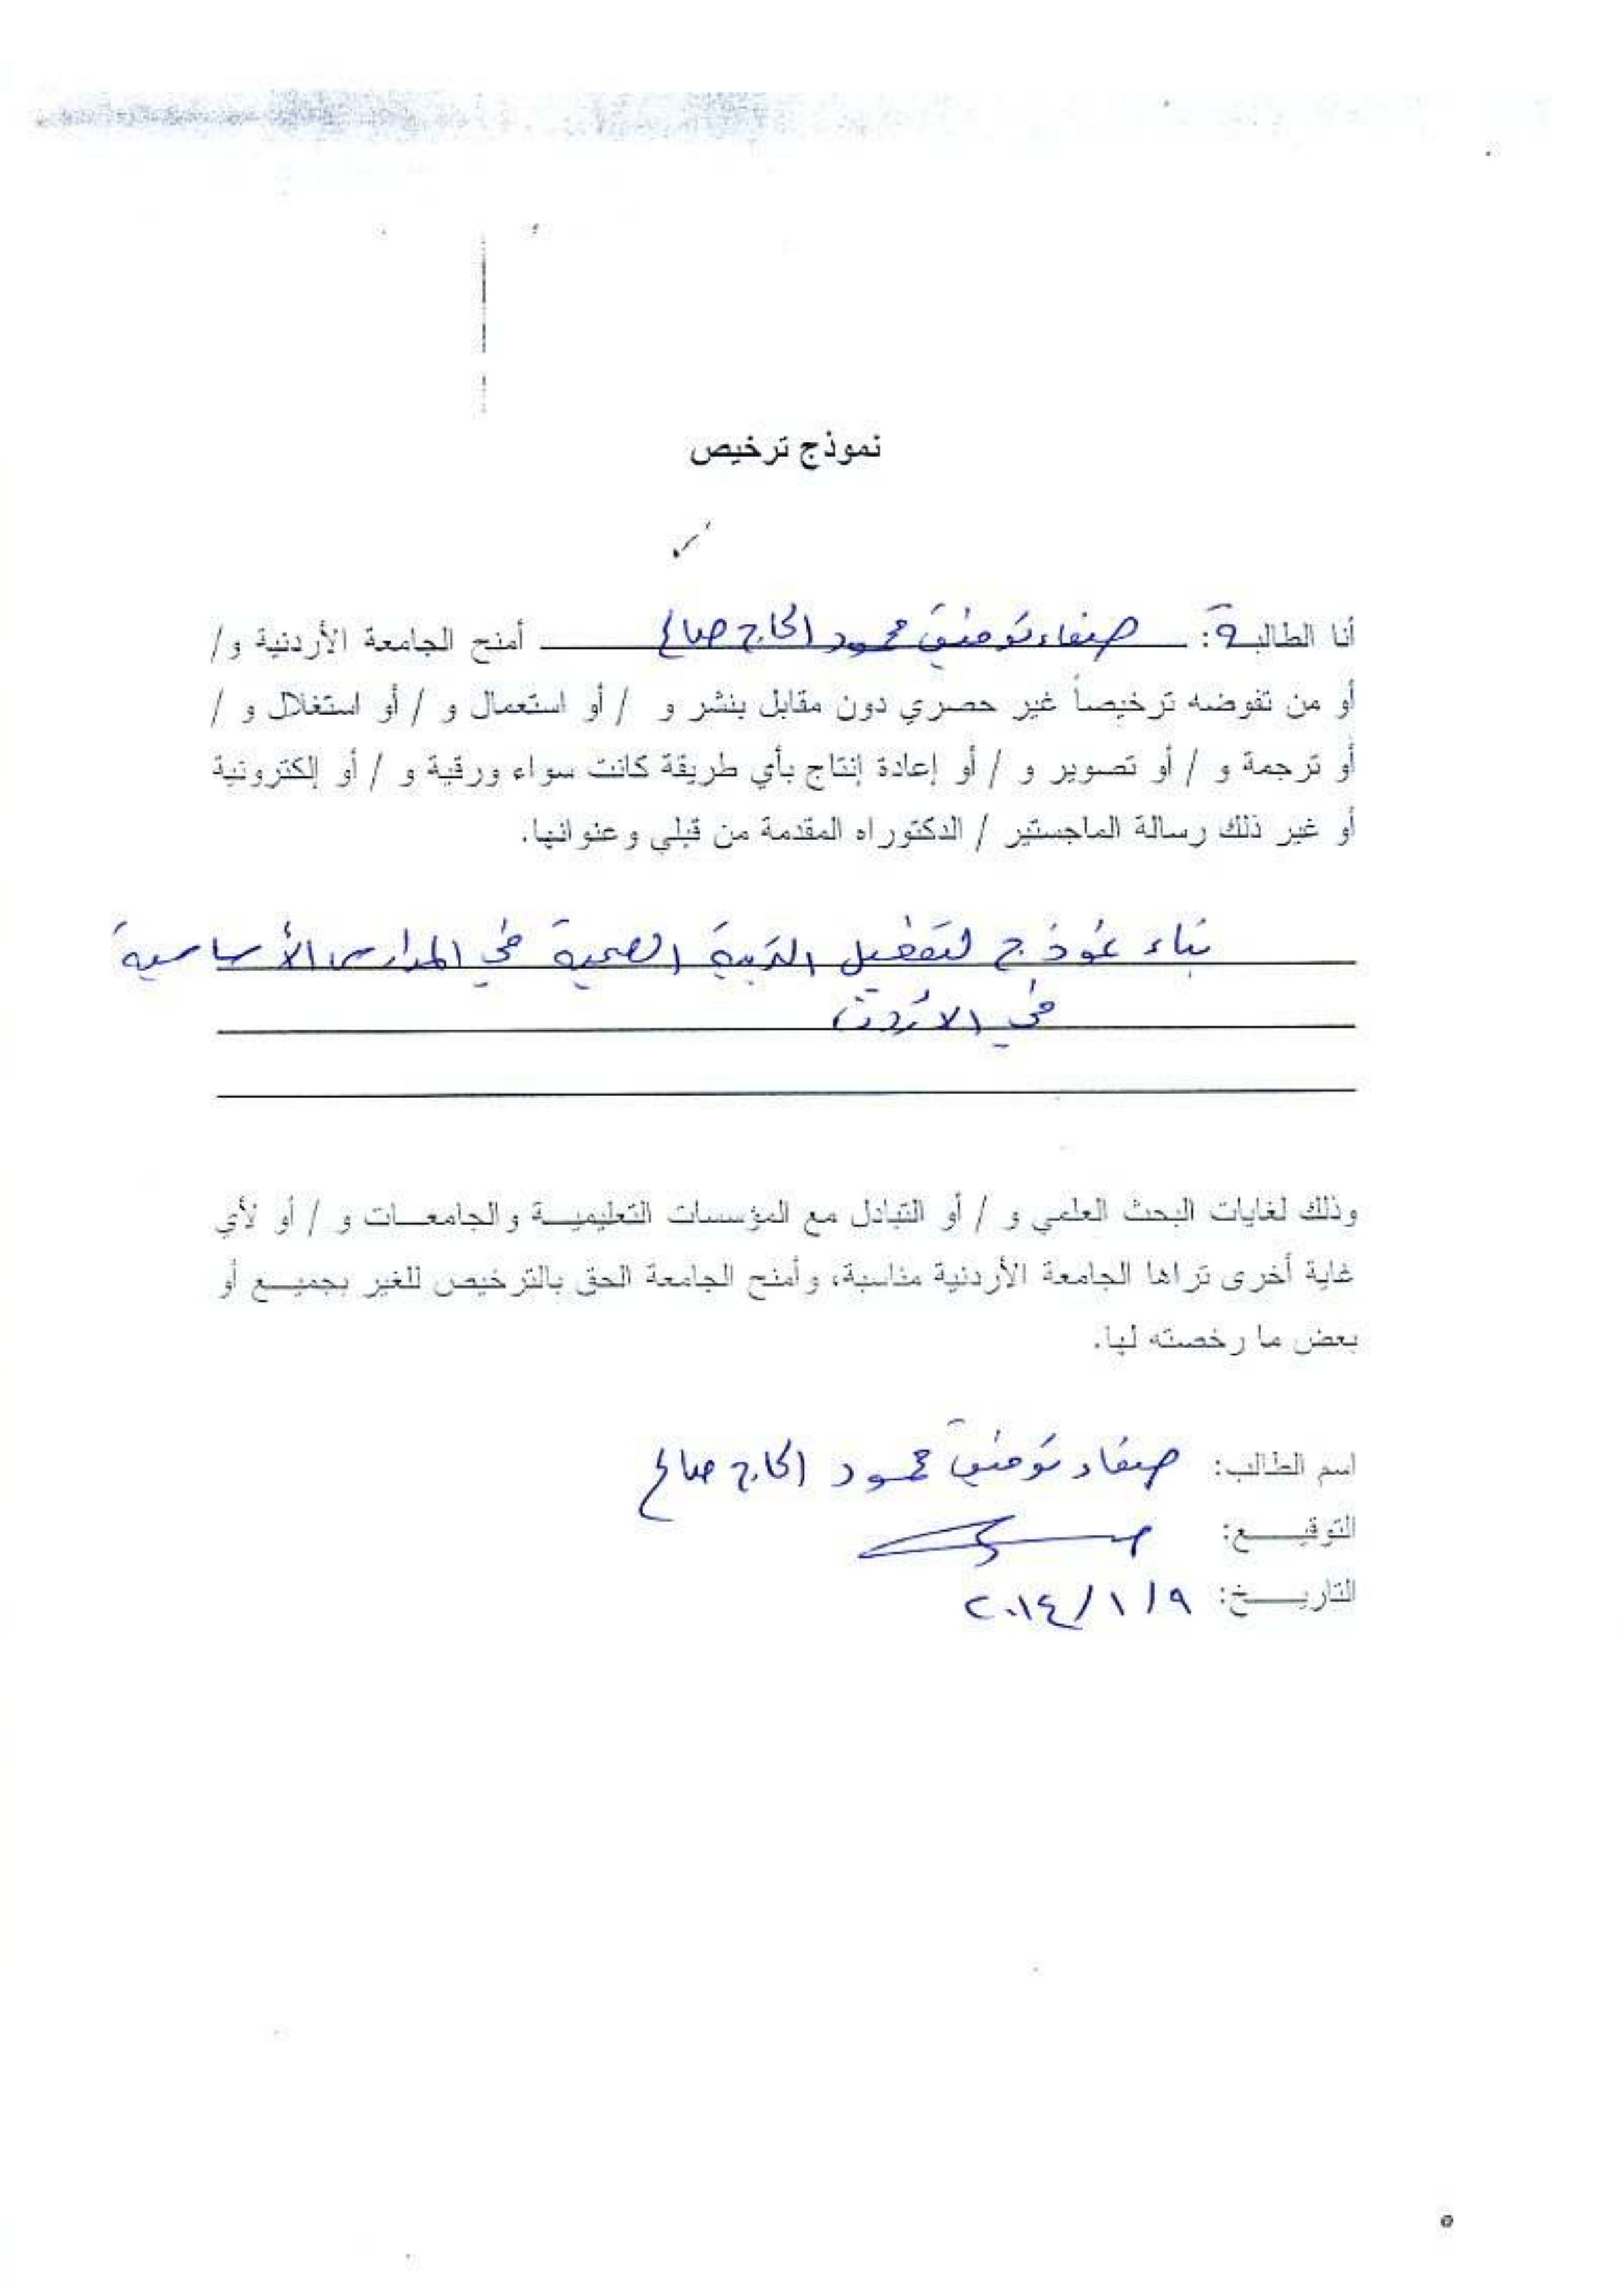 نموذج ترخيص
أنا الطالبة: صفاء توفيق محمود الحاج صالح أمنح الجامعة الأردنية و/
أو من تفوضه ترخيصاً غير حصري دون مقابل بنشر و / أو استعمال و / أو استغلال و /
أو ترجمة و / أو تصوير و / أو إعادة إنتاج بأي طريقة كانت سواء ورقية و / أو إلكترونية
أو غير ذلك رسالة الماجستير / الدكتوراه المقدمة من قبلي وعنوانها.
بناء نموذج لتفعيل التربية الصحية في المدارس الأساسية
في الأردن
وذلك لغايات البحث العلمي و / أو التبادل مع المؤسسات التعليمية والجامعات و / أو لأي
غاية أخرى تراها الجامعة الأردنية مناسبة، وأمنح الجامعة الحق بالترخيص للغير بجميع أو
بعض ما رخصته لها.
اسم الطالب: صفاء توفيق محمود الحاج صالح
التوقيع:
التاريخ: ٩/١/٢٠١٤